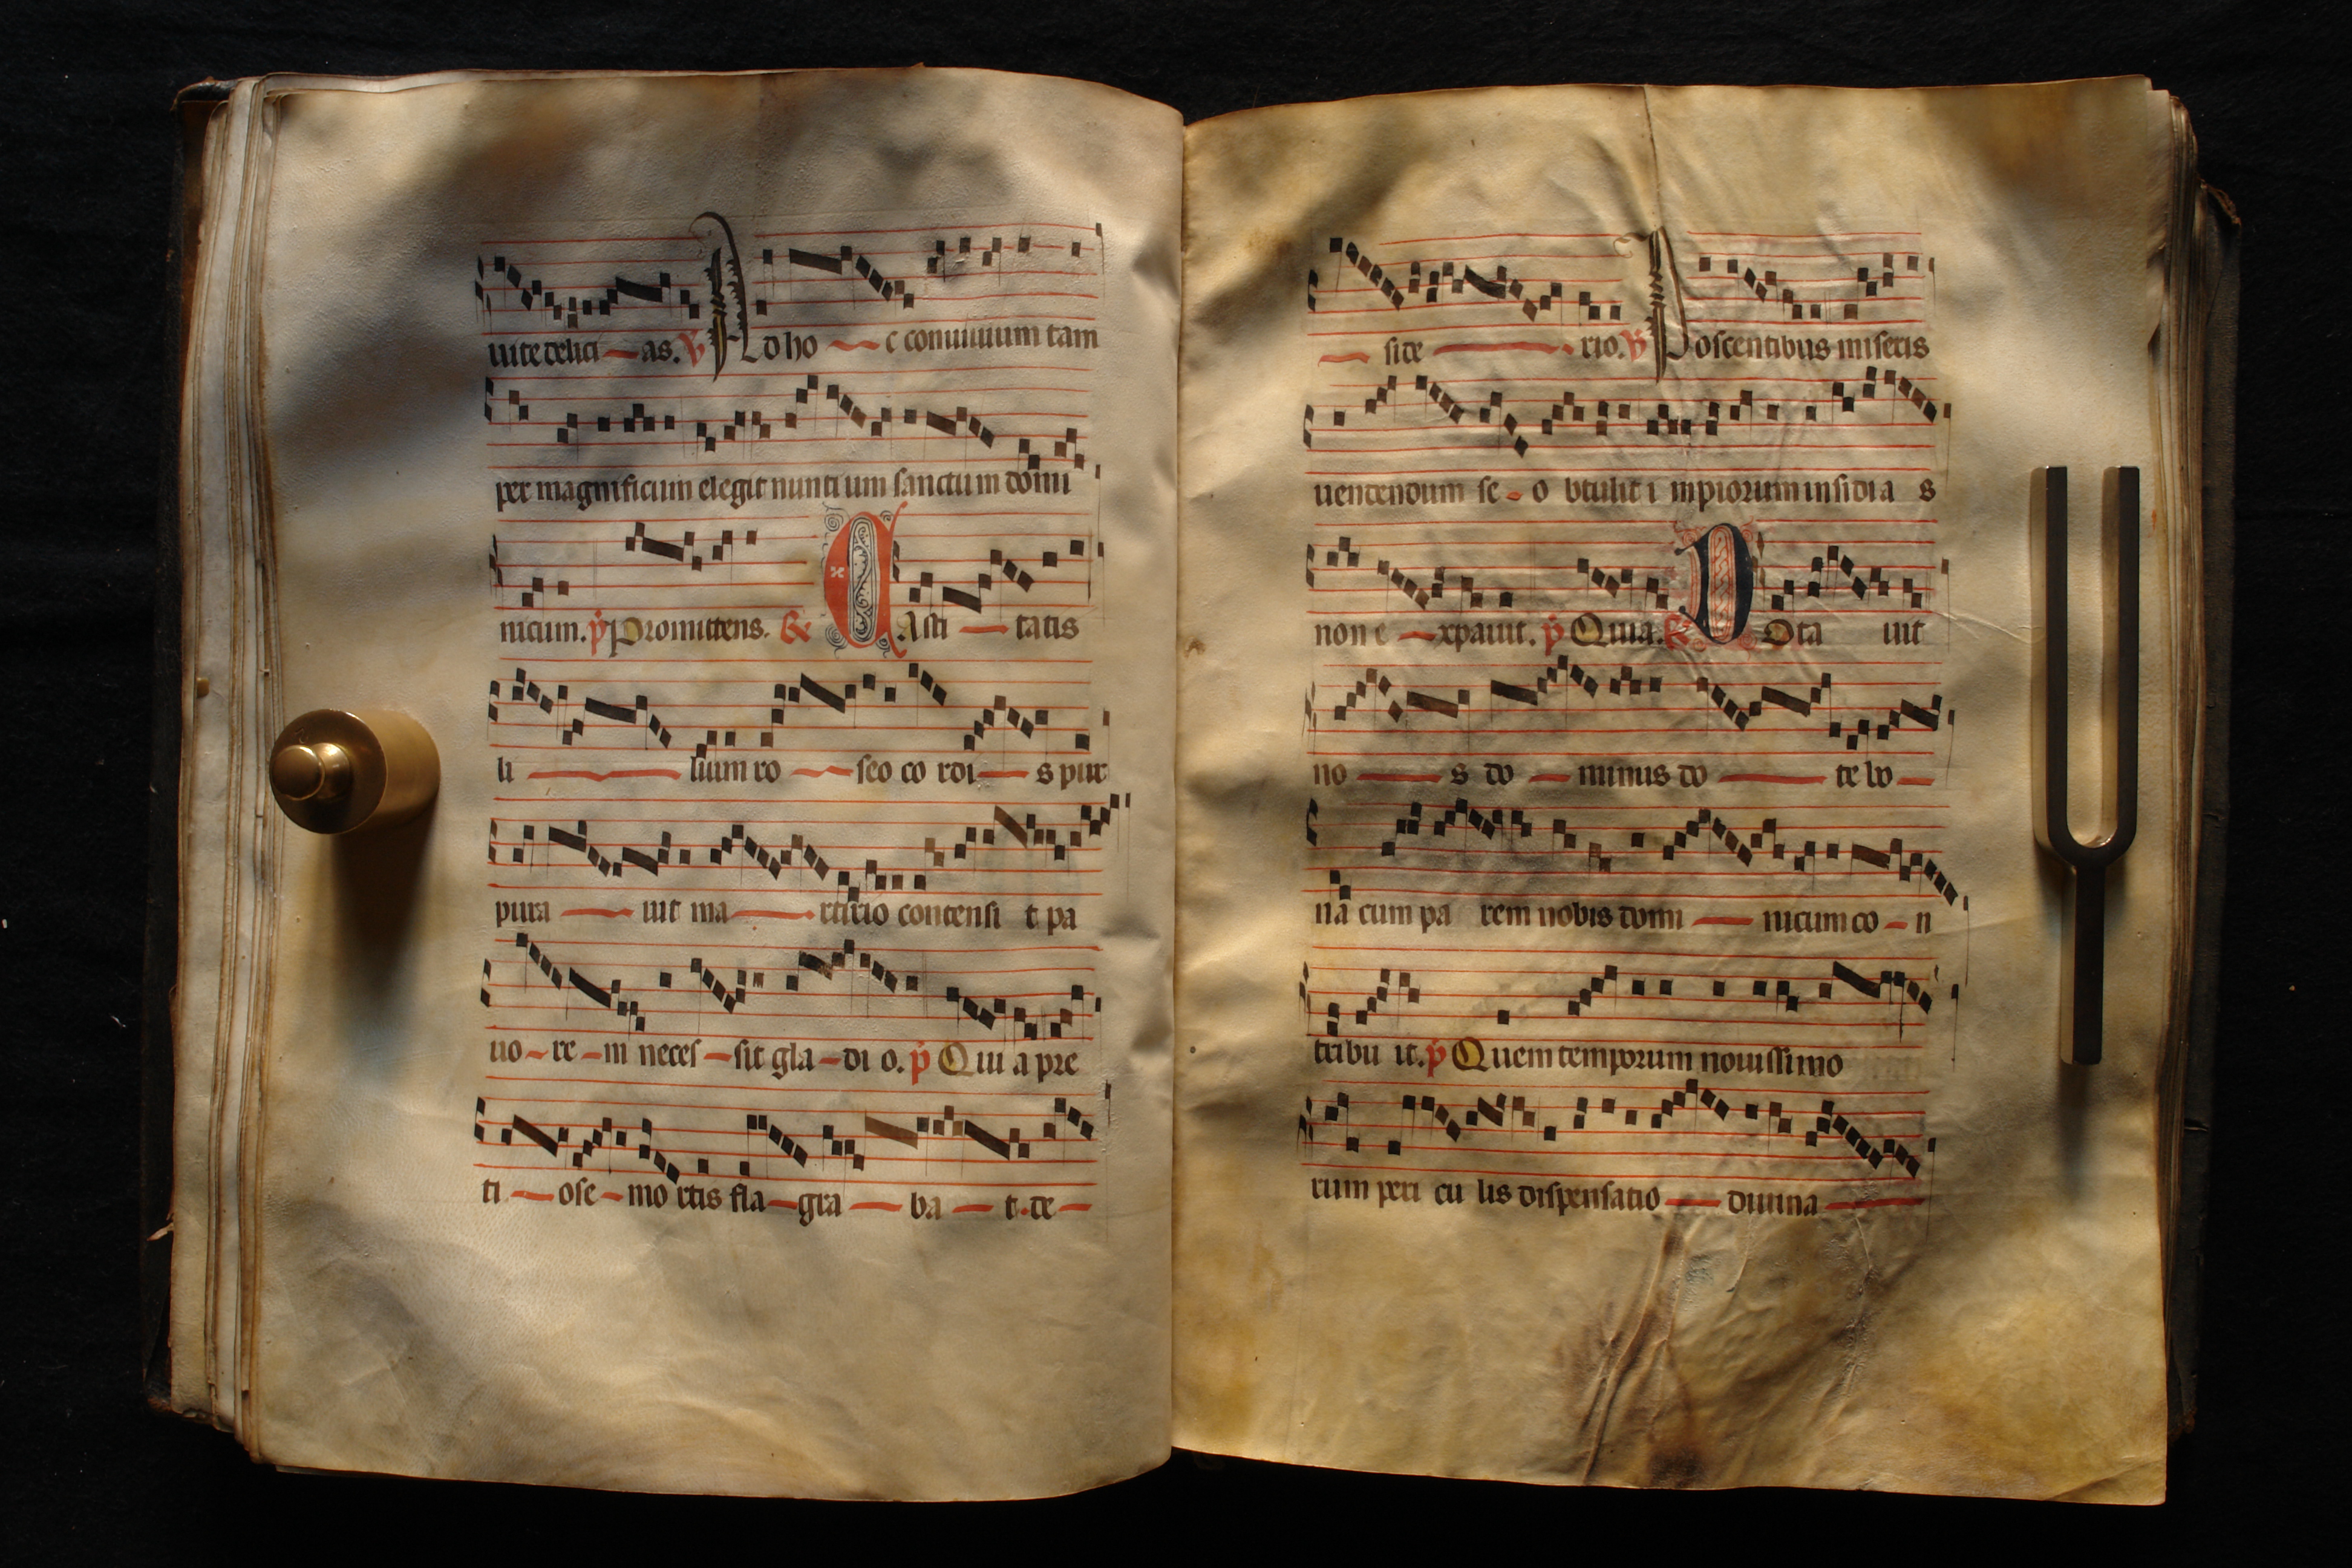 uite delici — as. ℣ Ad ho — c conuiuium tam
per magnificum elegit nuntium sanctum domi
nicum. p̄ Promittens. ℟ CAsti — tatis
li — lium ro — seo co roi — s pur
pura — uit ma — rtirio concensi t pa
uo - re - m neces - sit gla - di o. p̄ Qui a pre
ti — ose - mo rtis fla - gra — ba — t. de —
— side — rio. ℣ Poscentibus miseris
uendendum se - o btulit i mpiorum insidia s
non e — xpauit. p̄ Quia. ℟ DOta uit
no — s do — minus do — te bo —
na cum pa rem nobis domi — nicum co - n
tribu it. p̄ Quem temporum nouissimo
rum peri cu lis dispensatio — diuina —